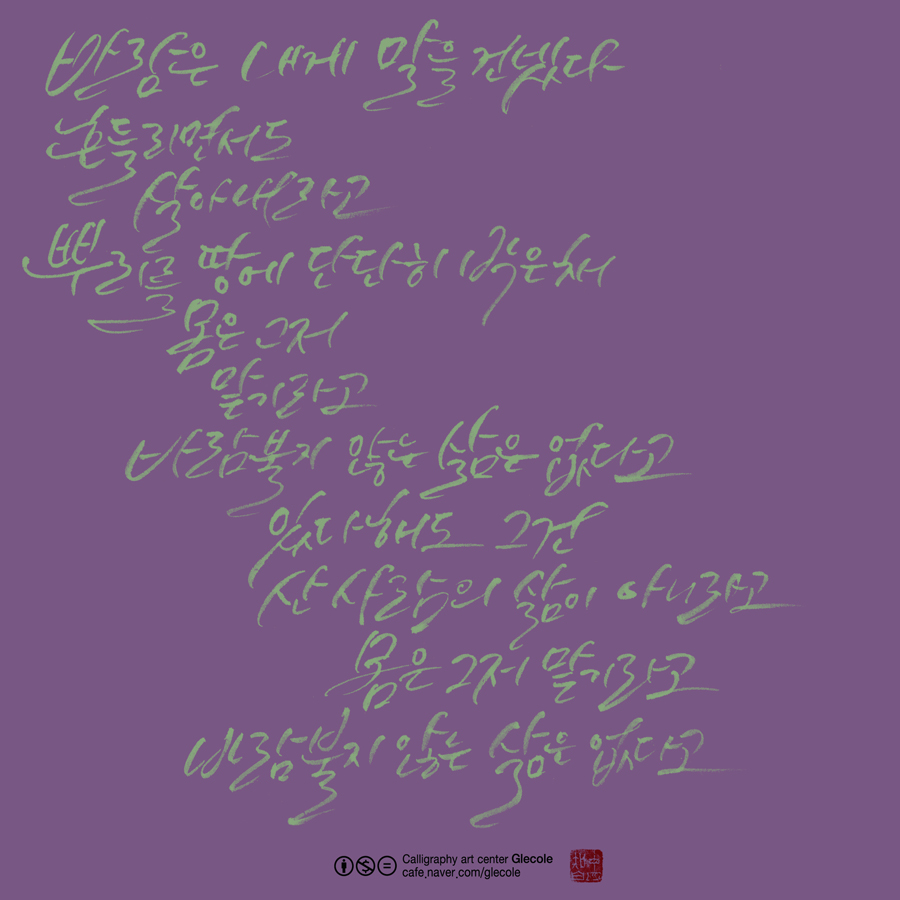 바람은 내게 말을 건넸다
흔들리면서도
살아내라고
뿌리를 땅에 단단히 박은채
몸은 그저
맡기라고
바람불지 않는 삶은 없다고
있다해도 그건
산 사람의 삶이 아니라고
몸은 그저 맡기라고
바람불지 않는 삶은 없다고
Calligraphy art center Glecole
cafe.naver.com/glecole